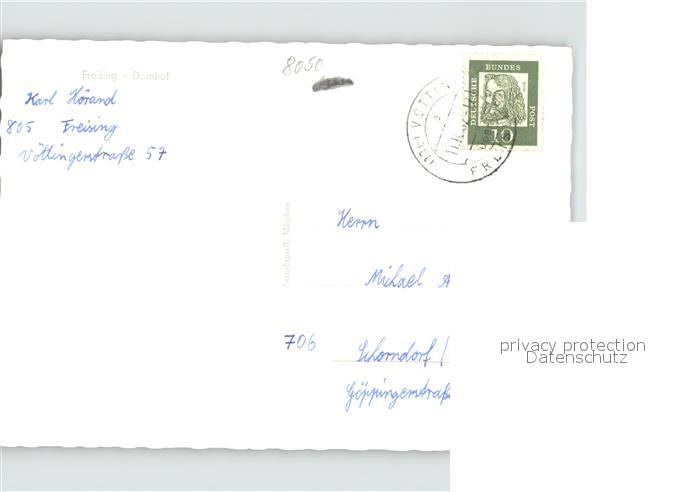 Freising - Domhof
8050
Karl Hörand
805 Freising
Vöttingerstraße 57
DEUTSCHE BUNDES POST
10
Aero-Expreß, München
Herrn
Michael A
706 Schorndorf /
Göppingerstraße
privacy protection
Datenschutz